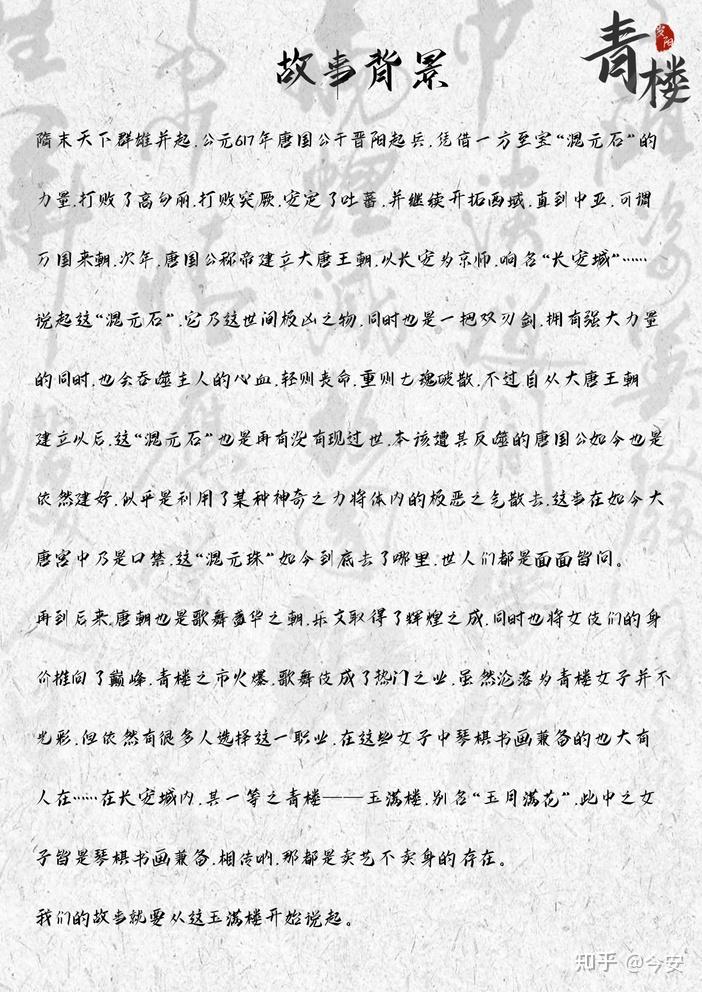 青楼
故事背景
隋末天下群雄并起,公元617年唐国公于晋阳起兵,凭借一方至宝“混元石”的
力量,打败了高句丽,打败突厥,安定了吐蕃,并继续开拓西域,直到中亚,可谓
万国来朝,次年,唐国公称帝建立大唐王朝,以长安为京师,响名“长安城”……
说起这“混元石”,它乃这世间极凶之物,同时也是一把双刃剑,拥有强大力量
的同时,也会吞噬主人的心血,轻则丧命,重则七魂破散,不过自从大唐王朝
建立以后,这“混元石”也是再有没有现过世,本该遭其反噬的唐国公如今也是
依然建好,似乎是利用了某种神奇之力将体内的极恶之气散去,这当在如今大
唐宫中乃是口禁,这“混元珠”如今到底去了哪里,世人们都是面面皆问。
再到后来,唐朝也是歌舞盛华之朝,乐文取得了辉煌之成,同时也将女伎们的身
价推向了巅峰,青楼之市火爆,歌舞伎成了热门之业,虽然沦落为青楼女子并不
光彩,但依然有很多人选择这一职业,在这些女子中琴棋书画兼备的也大有
人在……在长安城内,其一等之青楼——玉满楼,别名“玉月满花”,此中之女
子皆是琴棋书画兼备,相传呐,那都是卖艺不卖身的存在。
我们的故事就要从这玉满楼开始说起。
知乎 @今安